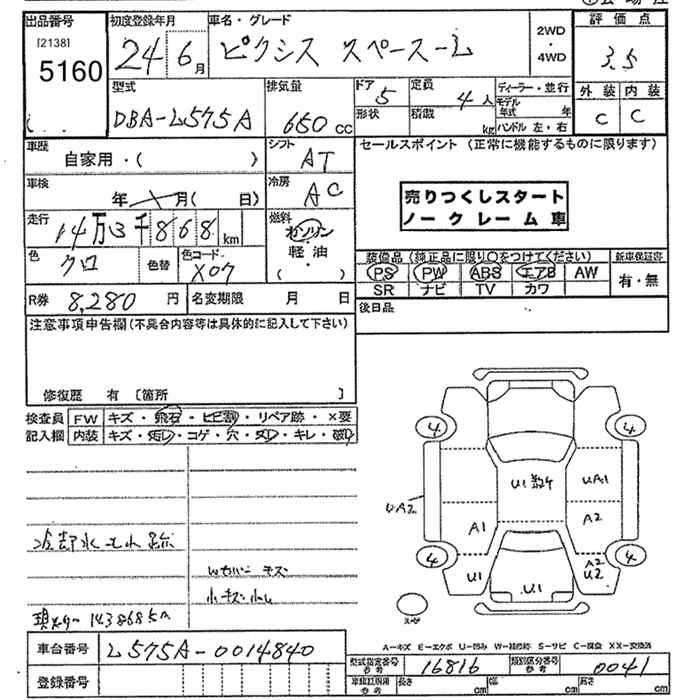 出品番号 初度登録年月 車名・グレード 2WD ・ 4WD 評価点
[2138]
5160 24 6月 ピクシス スペースーL 3.5
型式 排気量 ドア 5 定員 4人 ディーラー・並行 外装 内装
DBA-L575A 650cc 形状 積載 kg モデル年式 年 C C
ハンドル 左・右
車歴 自家用・( ) シフト AT セールスポイント (正常に機能するものに限ります)
車検 年 月( 日) 冷房 AC
売りつくしスタート
ノークレーム車
走行 14万3千868km 燃料 ガソリン・軽油 ( )
色 クロ 色替 色コード X07
装備品 (純正品に限り○をつけてください) 新車保証書
PS PW ABS エアB AW 有・無
SR ナビ TV カワ
R券 8,280円 名変期限 月 日 後日品
注意事項申告欄 (不具合内容等は具体的に記入して下さい)
修復歴 有 〔箇所 〕
検査員 FW キズ・飛石・ヒビ割・リペア跡・×要
記入欄 内装 キズ・汚レ・コゲ・穴・スレ・キレ・破レ
4 4
U1 数ケ UA1
UA2
A1 A2
冷却水モレ跡
4 4
Wカバー キズ
U1 U1 A2 U2
小キズ 小凹
現メーター 143868km
スペア
A-キズ E-エクボ U-凹み W-補修跡 S-サビ C-腐食 XX-交換済
車台番号 L575A-0014840 型式指定番号 参考 16816 類別区分番号 参考 0041
登録番号 車検証記載 参考 長さ cm 幅 cm 高さ cm